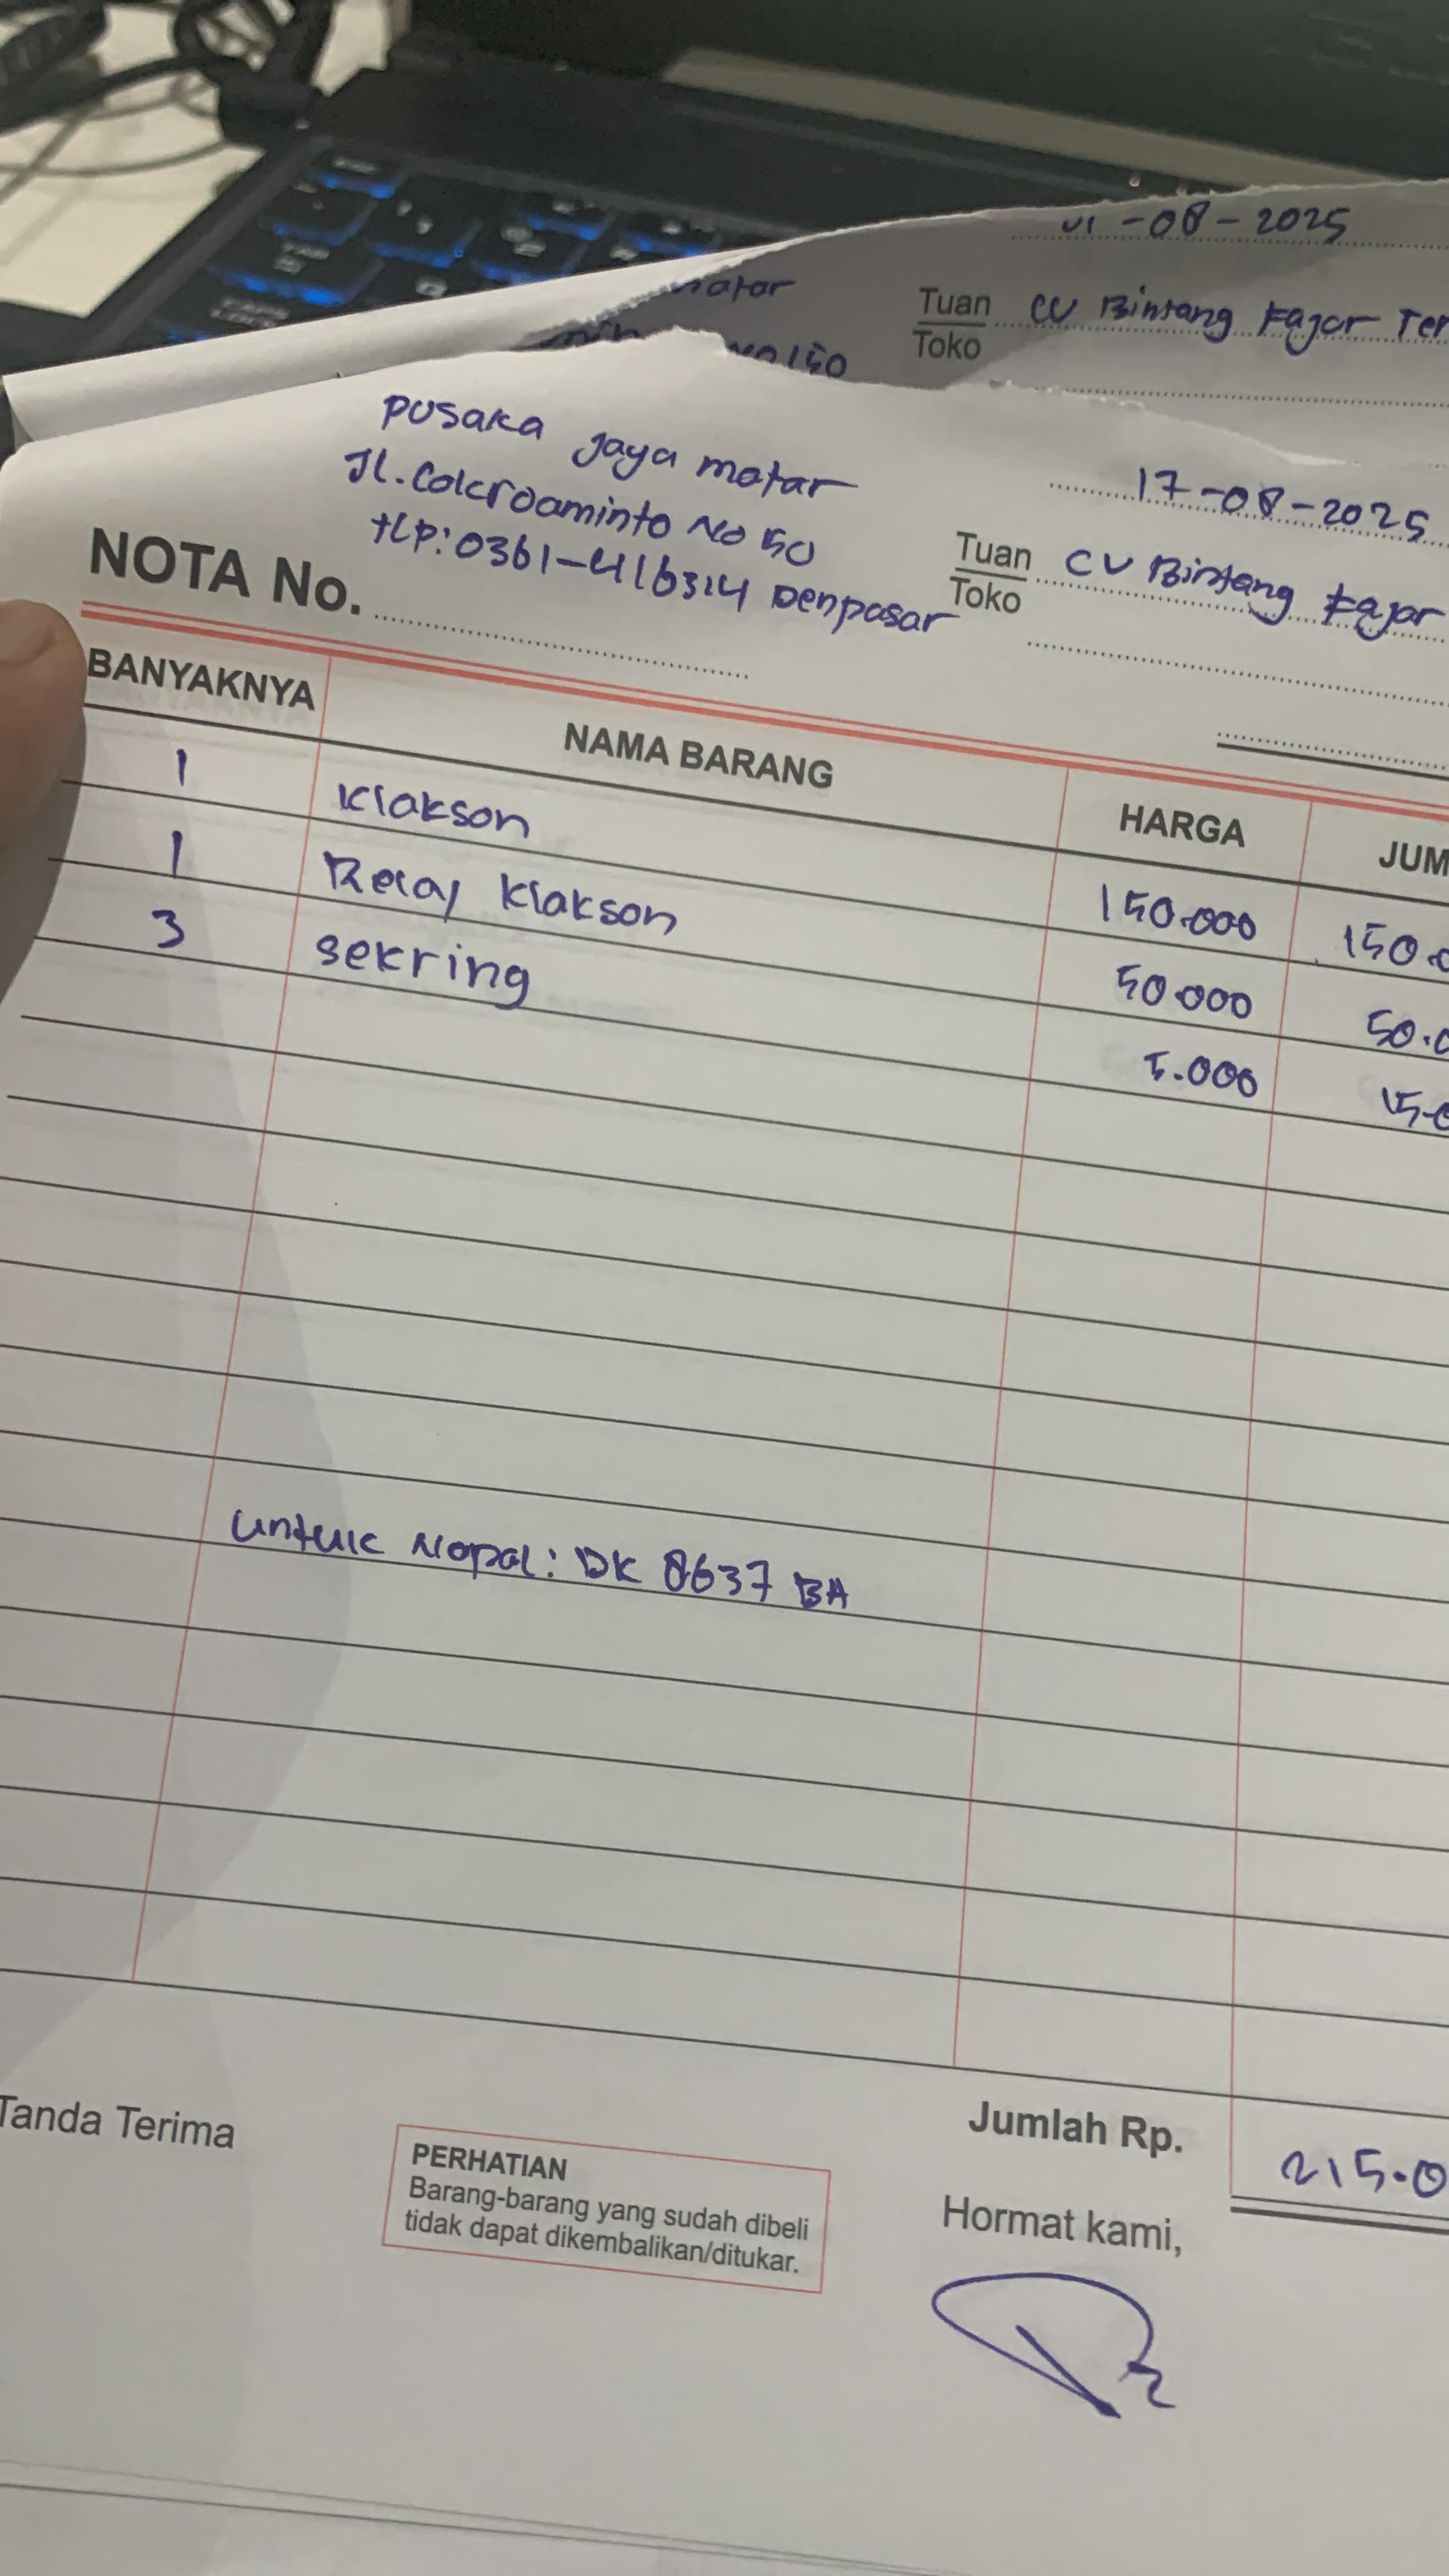 -08-2025
Tuan CV Bintang Fajar Ter
Toko
pusaka jaya motor
Jl. Cokroaminto No 50
tlp: 0361-416314 Denpasar
17-08-2025
Tuan CV Bintang Fajar
Toko
NOTA No.
BANYAKNYA NAMA BARANG HARGA JUM
1 Klakson 150.000 150.0
1 Relay Klakson 50.000 50.0
3 sekring 5.000 15.0
untuk Nopol: DK 8637 BA
Tanda Terima
Jumlah Rp. 215.0
PERHATIAN
Barang-barang yang sudah dibeli
tidak dapat dikembalikan/ditukar.
Hormat kami,